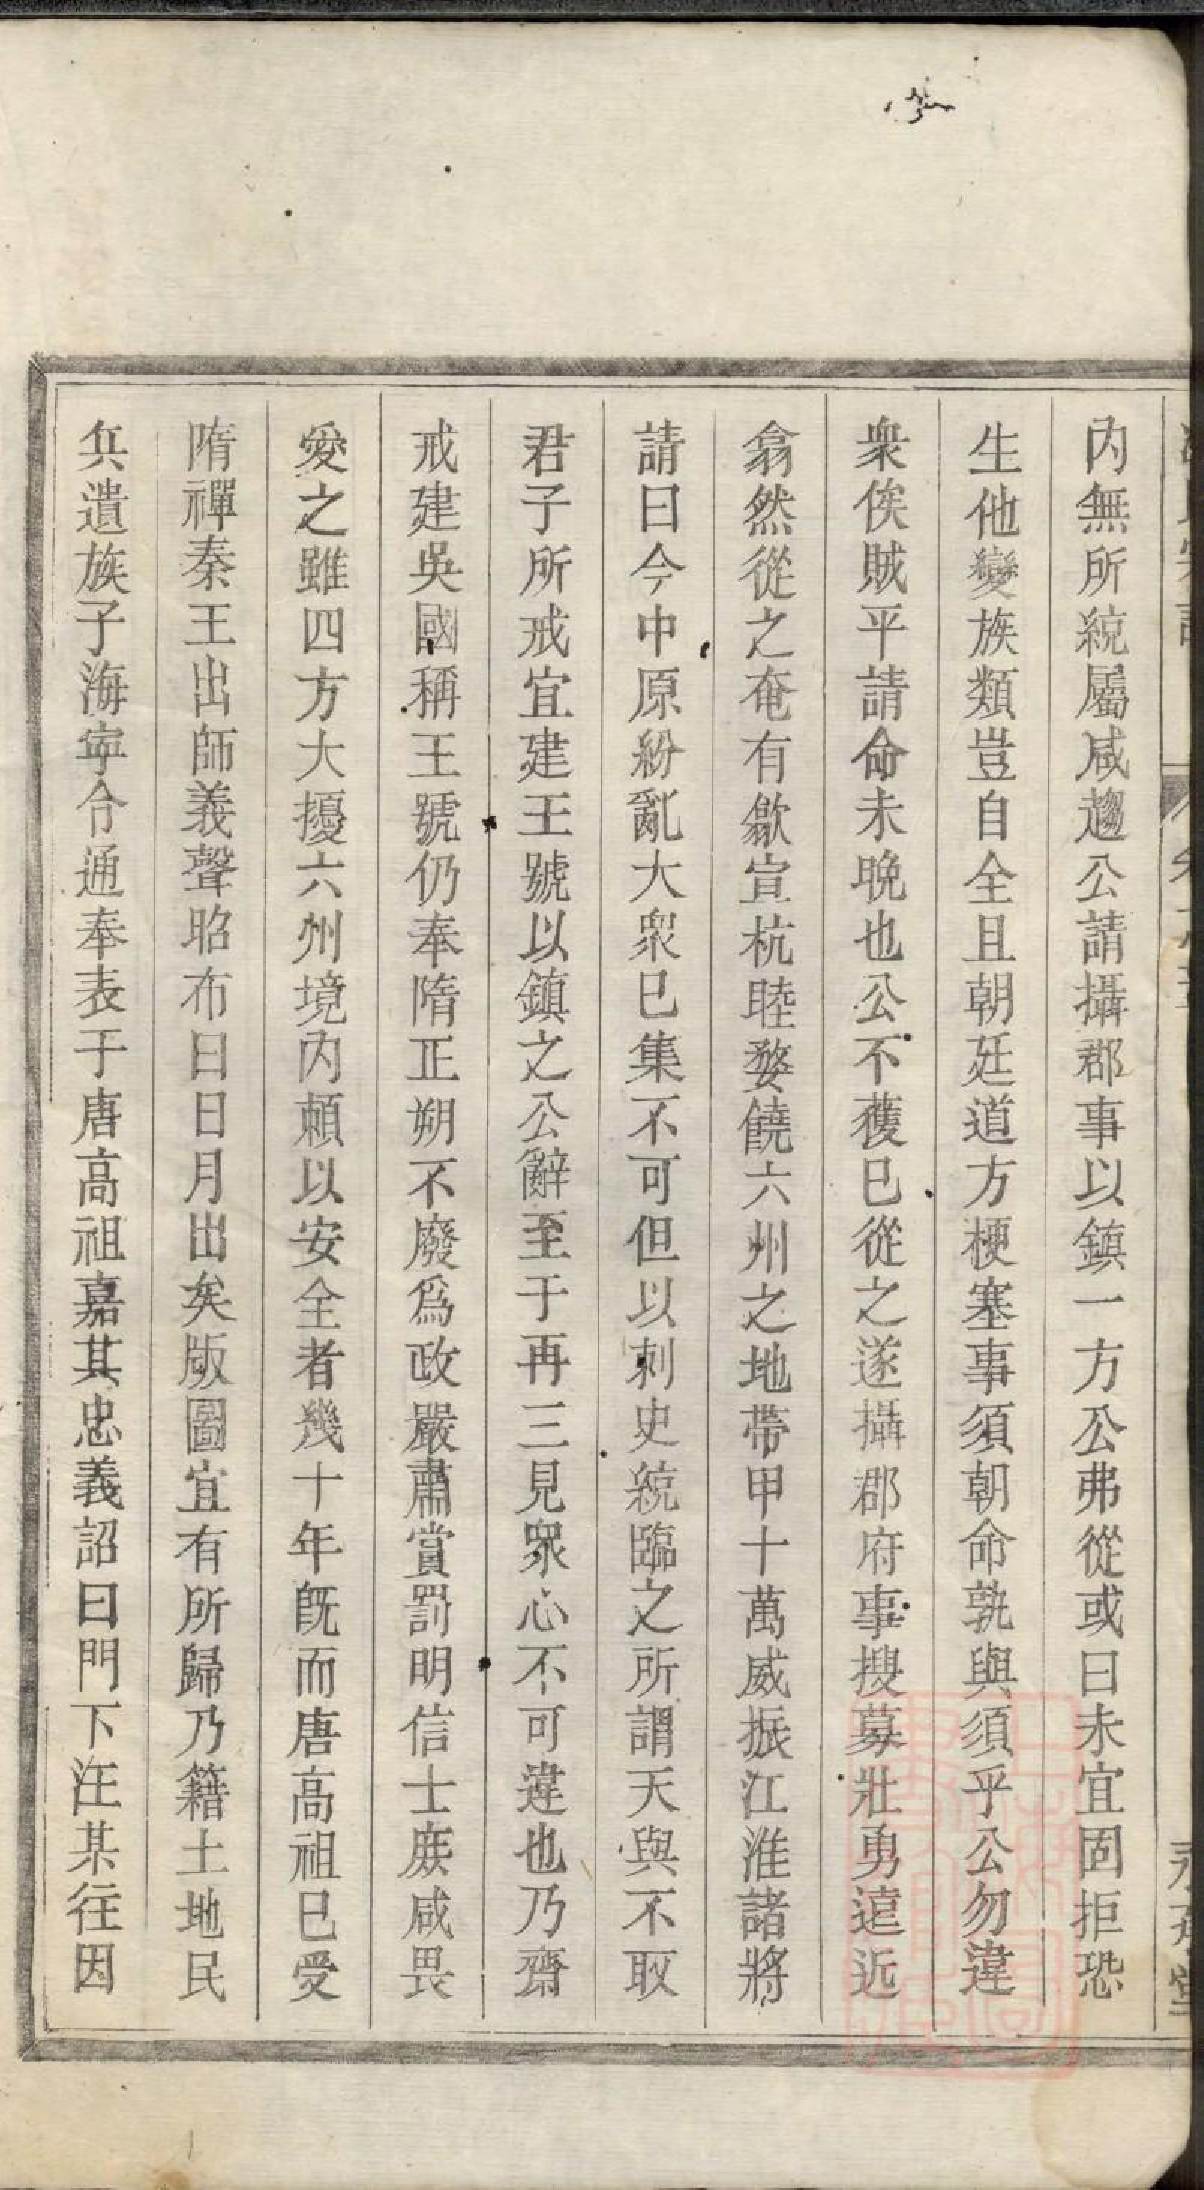 內無所統屬咸趨公請攝郡事以鎮一方公弗從或曰未宜固拒恐
生他變族類豈自全且朝廷道方梗塞事須朝命孰與須乎公勿違
衆俟賊平請命未晚也公不獲已從之遂攝郡府事搜募壯勇遠近
翕然從之奄有歙宣杭睦婺饒六州之地帶甲十萬威振江淮諸將
請曰今中原紛亂大衆已集不可但以刺史統臨之所謂天與不取
君子所戒宜建王號以鎮之公辭至于再三見衆心不可違也乃齋
戒建吳國稱王號仍奉隋正朔不廢爲政嚴肅賞罰明信士庶咸畏
愛之雖四方大擾六州境內頼以安全者幾十年旣而唐高祖已受
隋禪秦王出師義聲昭布曰日月出矣版圖宜有所歸乃籍土地民
兵遣族子海寧令通奉表于唐高祖嘉其忠義詔曰門下汪某往因